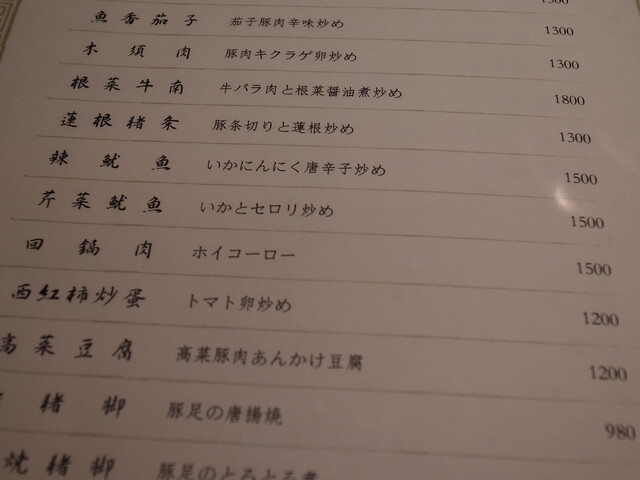 1300
魚香茄子 茄子豚肉辛味炒め 1300
木須肉 豚肉キクラゲ卵炒め 1300
根菜牛南 牛バラ肉と根菜醤油煮炒め 1800
蓮根猪条 豚条切りと蓮根炒め 1300
辣魷魚 いかにんにく唐辛子炒め 1500
芹菜魷魚 いかとセロリ炒め 1500
回鍋肉 ホイコーロー 1500
西紅柿炒蛋 トマト卵炒め 1200
高菜豆腐 高菜豚肉あんかけ豆腐 1200
猪御 豚足の唐揚焼 980
焼猪御 豚足のとろとろ煮